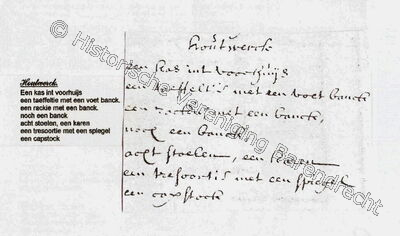 Houtwerck.
Een kas int voorhuijs
een taeffeltie met een voet banck.
een rackie met een banck.
noch een banck
acht stoelen, een karen
een tresoortie met een spiegel
een capstock
houtwerck
een kas int voorhuijs
een taeffeltie met een voet banck
een rackie met een banck,
noch een banck
acht stoelen, een karen
een tresoortie met een spiegel
een capstock
© Historische Vereniging Barendrecht